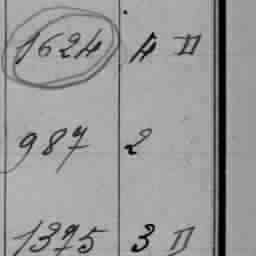 1624 4 II
987 2
1375 3 II